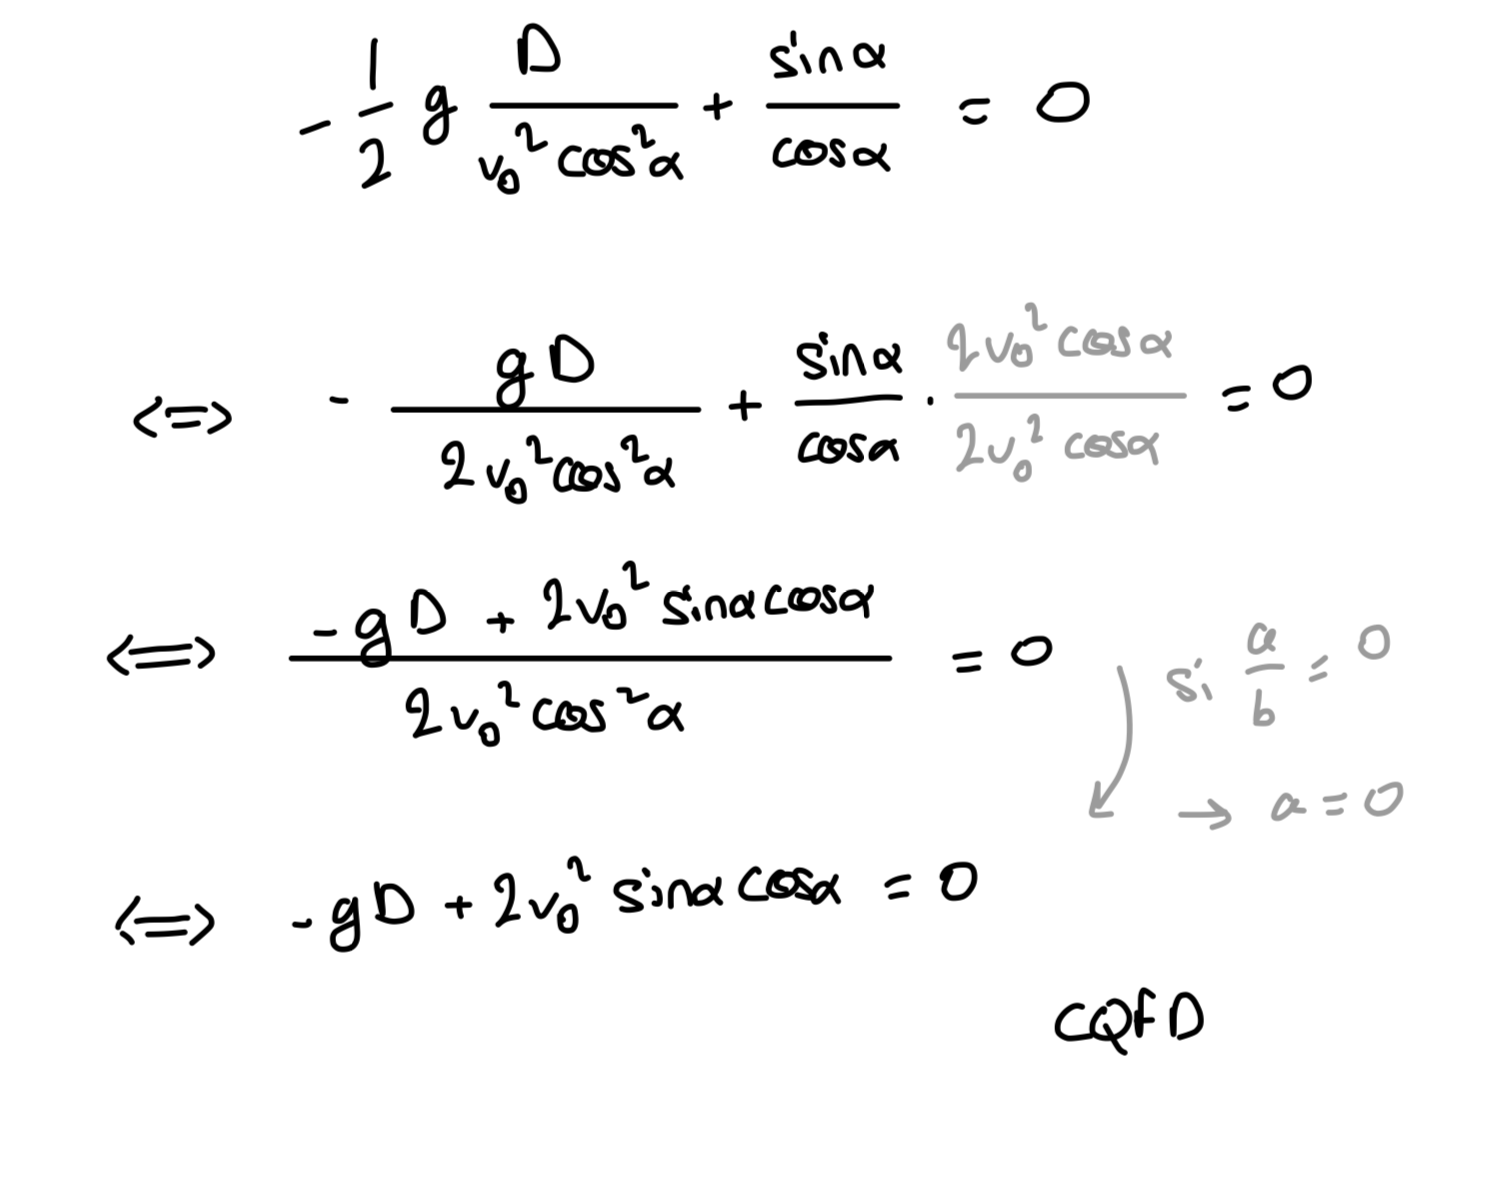 - 1/2 g D/(v₀² cos²α) + sinα/cosα = 0
<=> - gD/(2v₀²cos²α) + sinα/cosα · 2v₀² cosα/(2v₀² cosα) = 0
<=> (-gD + 2v₀² sinα cosα)/(2v₀² cos²α) = 0
si a/b = 0
→ a = 0
<=> -gD + 2v₀² sinα cosα = 0
CQFD